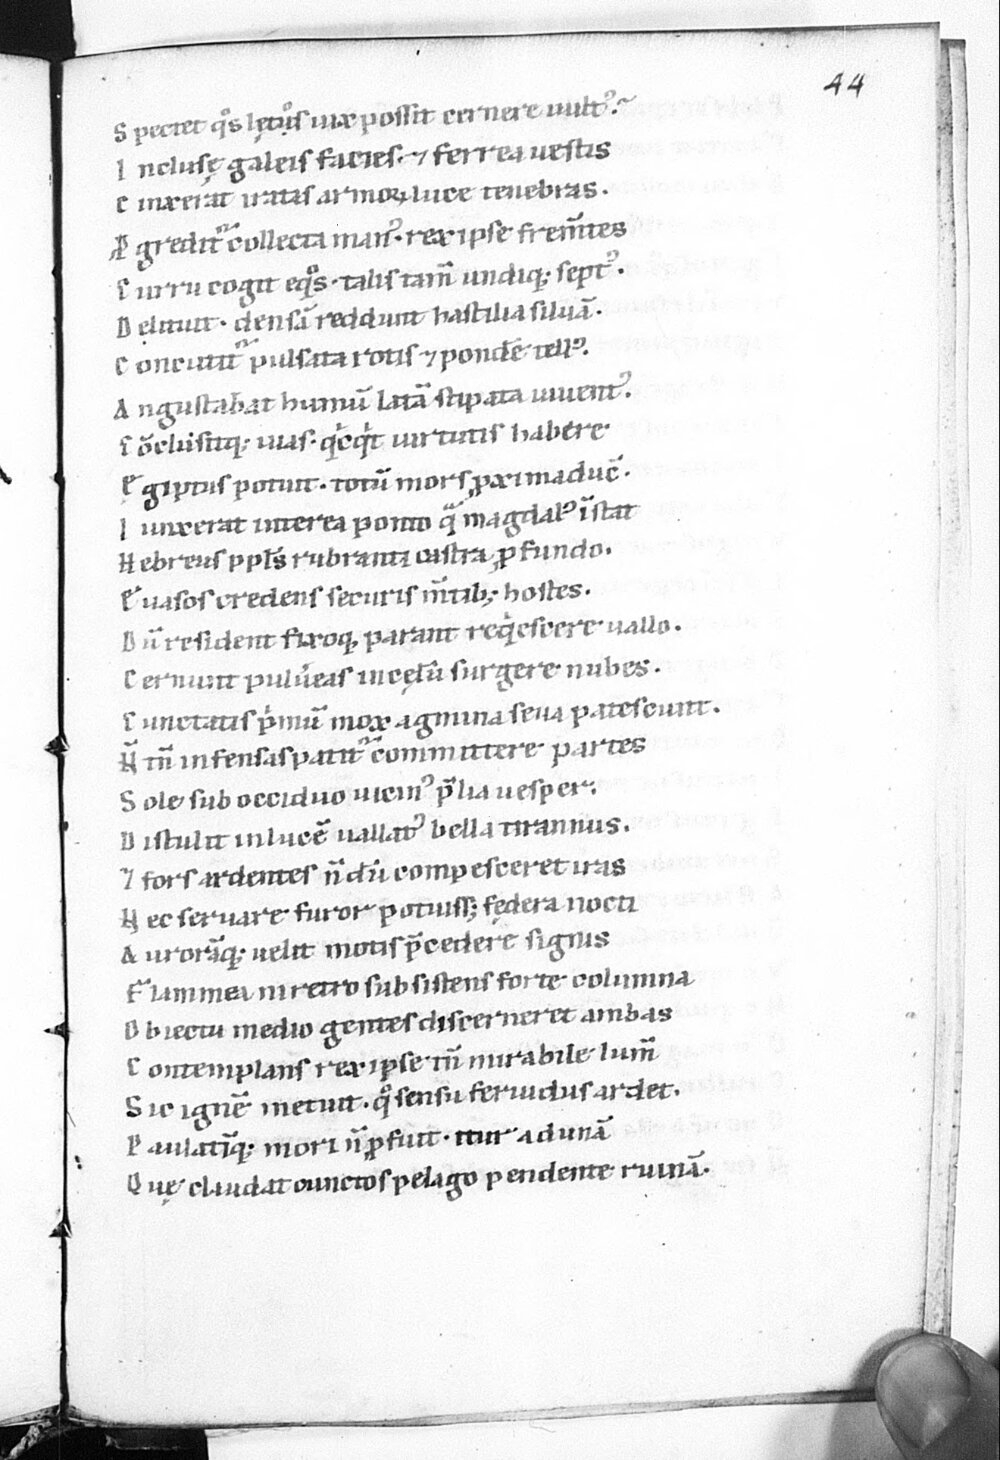 44
Spectet q̊s lętus̊ uix possit cernere uult᾿.
Inclusę galeis facies. ⁊ ferrea uestis
Cinxerat iratas armoꝝ luce tenebras.
Agredit᷑ collecta man᾿. rex ipse frem̄tes
Curru cogit eq̊s. talis tam̄ undiq; sept᾿.
Delituit. densā reddunt hastilia siluā.
Concutit᷑ pulsata rotis ⁊ pondē tell᾿.
Angustabat humū latā stipata iuuent᾿.
Cōclusitq; uias. qͥcqͥt uirtutis habere
Egiptus potuit. totū mors ꝓxima duc̄.
Iunxerat interea ponto qͣ magdal᾿ īstat
Hebreus ppl̄s rubranti castra ꝓfundo.
Euasos credens securis m̄tib; hostes.
Dū resident fixoq; parant reqͥescere uallo.
Cernunt puluͤeas in cęlū surgere nubes.
Cunctatis pͥmū mox agmina seua patescunt.
N̄ tn̄ infensas patit᷑ committere partes
Sole sub occiduo uicin᾿ p̄lia uesper.
Distulit in lucē uallat᾿ bella tirannus.
⁊ fors ardentes n̄dū compesceret iras
Nec seruare furor potuiss; fędera nocti
Aurorāq; uelit motis p̄cedere signis
Flammea ni retro subsistens forte columna
Obiectu medio gentes discerneret ambas
Contemplans rex ipse tn̄ mirabile lum̄
Sic ignē metuit. q̊ sensu feruidus ardet.
Paulatīq; mori n̄ ꝓfuit. itur ad undā
Quę claudat cunctos pelago pendente ruinā.